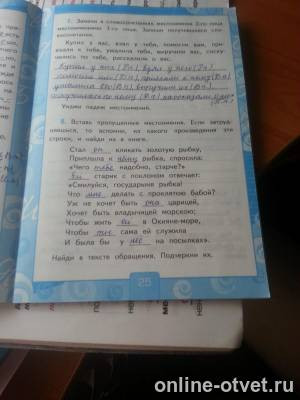 7. Замени в словосочетаниях местоимения 2-го лица
местоимениями 3-го лица. Запиши получившиеся сло-
восочетания.
Купил у вас, взял у тебя, помогли вам, при-
ехали к тебе, увидела тебя, выручим вас, соску-
чились по тебе, рассказали о вас.
Купил у них (Р.п.), взял у него (Р.п.),
помогли им (Д.п.), приехали к нему (Д.п.)
увидела его (В.п.), выручим их (В.п.),
Укажи падеж местоимений.
8. Вставь пропущенные местоимения. Если затруд-
няешься, то вспомни, из какого произведения эти
строки, и найди их в книге.
Стал он кликать золотую рыбку,
Приплыла к нему рыбка, спросила:
«Чего тебе надобно, старче?»
Ей старик с поклоном отвечает:
«Смилуйся, государыня рыбка!
Что мне делать с проклятою бабой?
Уж не хочет быть она царицей,
Хочет быть владычицей морскою;
Чтобы жить ей в Окияне-море,
Чтобы ты сама ей служила
И была бы у неё на посылках».
Найди в тексте обращения. Подчеркни их.
25
online-otvet.ru